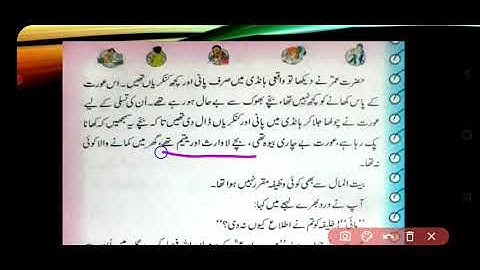 حضرت عمرؓ نے دیکھا تو واقعی ہانڈی میں صرف پانی اور کچھ کنکریاں تھیں۔ اس عورت
کے پاس کھانے کو کچھ نہیں تھا، بچے بھوک سے بے حال ہو رہے تھے۔ اُن کی تسلی کے لیے
عورت نے چولھا جلا کر ہانڈی میں پانی اور کنکریاں ڈال دی تھیں تاکہ بچے یہ سمجھیں کہ کھانا
پک رہا ہے، عورت بے چاری بیوہ تھی، بچے لاوارث اور یتیم تھے، گھر میں کمانے والا کوئی
نہ تھا۔
بیت المال سے بھی کوئی وظیفہ مقرر نہیں ہوا تھا۔
آپ نے درد بھرے لہجے میں کہا:
”مائی“! خلیفہ کو تم نے اطلاع کیوں نہ دی؟“